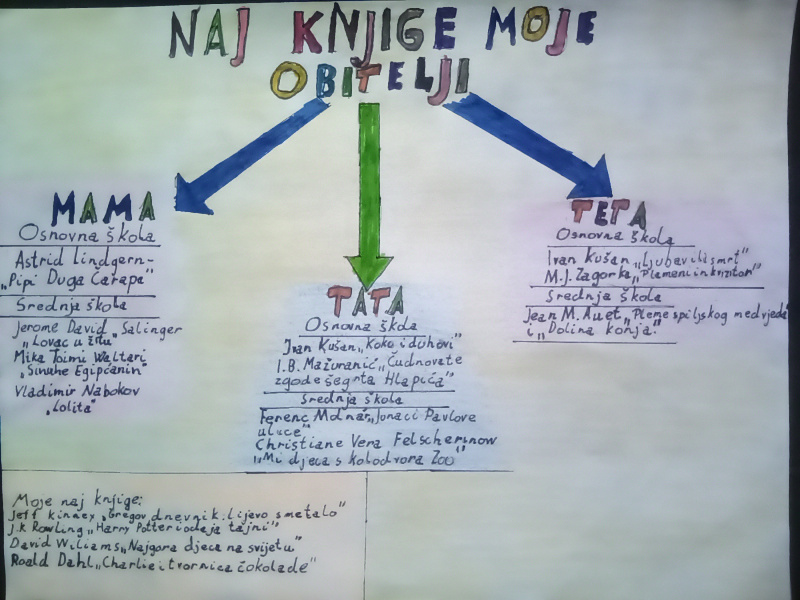 NAJ KNJIGE MOJE
OBITELJI
MAMA
Osnovna škola
Astrid Lindgern-
„Pipi Duga Čarapa"
Srednja škola
Jerome David Salinger
„Lovac u žitu"
Mika Toimi Waltari
„Sinuhe Egipćanin"
Vladimir Nabokov
„Lolita"
TATA
Osnovna škola
Ivan Kušan „Koko i duhovi"
I.B. Mažuranić „Čudnovate
zgode šegrta Hlapića"
Srednja škola
Ferenc Molnár „Junaci Pavlove
ulice"
Christiane Vera Felscherinow
„Mi djeca s kolodvora Zoo"
TETA
Osnovna škola
Ivan Kušan „Ljubav ili smrt"
M.J. Zagorka „Plameni inkvizitori"
Srednja škola
Jean M. Auel „Pleme spiljskog medvjeda"
i „Dolina konja."
Moje naj knjige:
Jeff Kinney „Gregov dnevnik: Ljevo smetalo"
J.K Rowling „Harry Potter i odaja tajni"
David Wiliams „Najgora djeca na svijetu"
Roald Dahl „Charlie i tvornica čokolade"